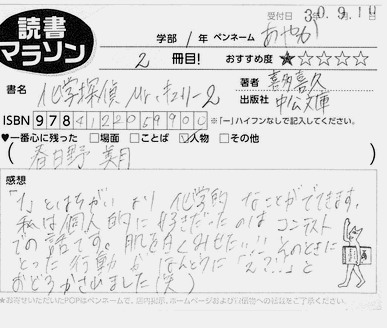 読書
マラソン
受付日 30.9.10
学部 1年 ペンネーム あやか
2 冊目! おすすめ度 ★☆☆☆☆
書名 化学探偵Mr.キュリー2
著者 喜多喜久
出版社 中公文庫
ISBN 978 4122059900 ※「ー」ハイフンなしで記入してください。
♥一番心に残った □場面 □ことば ☑人物 □その他
(春日野 美月)
感想
「1」とはちがい より 化学的 なことがでてきます。
私は個人的に好きだったのは コンテスト
での話です。肌を白くみせたい…! そのときに
とった行動が なんとうに「え?…」と
おどろかされました(笑)
★お寄せいただいたPOPはペンネームで、店内掲示、ホームページおよび への掲載をご了承ください。